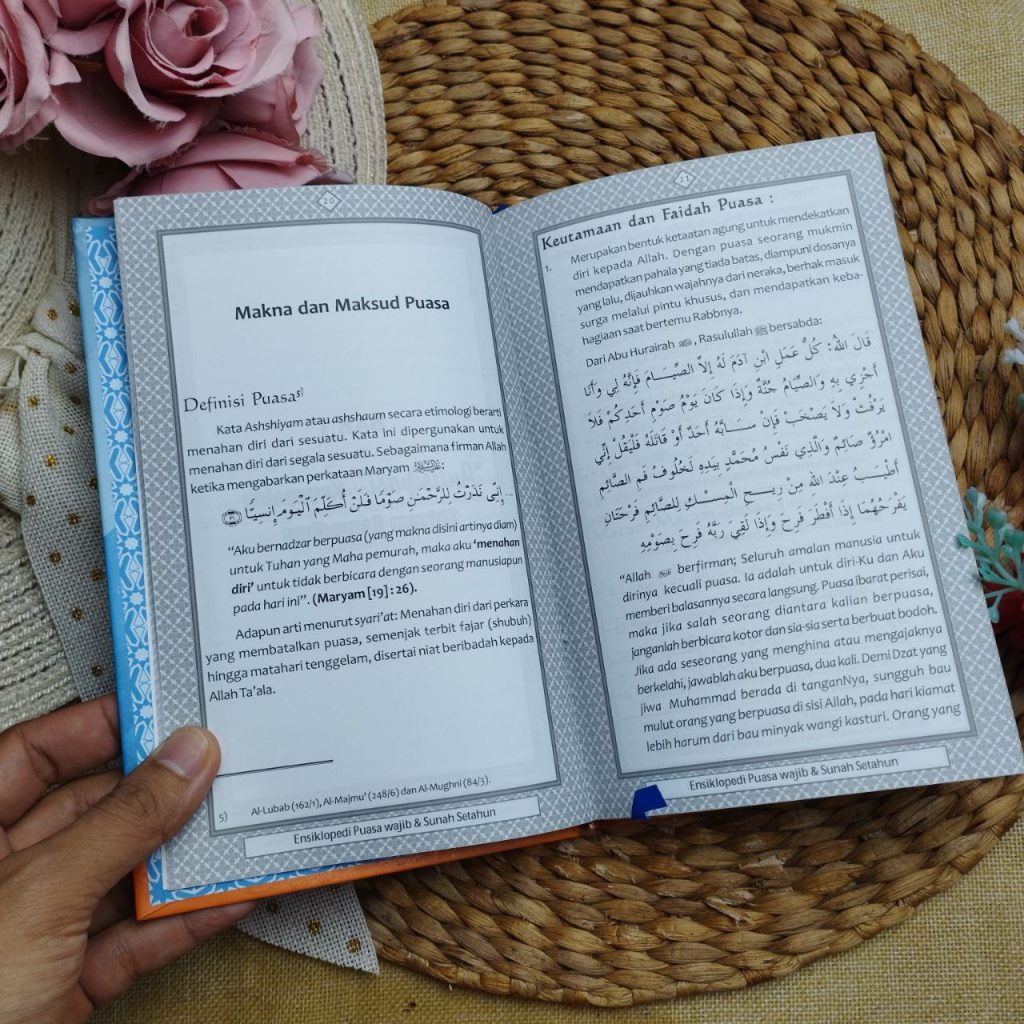 20
Makna dan Maksud Puasa
Definisi Puasa5)
Kata Ashshiyam atau ashshaum secara etimologi berarti
menahan diri dari sesuatu. Kata ini dipergunakan untuk
menahan diri dari segala sesuatu. Sebagaimana firman Allah
ketika mengabarkan perkataan Maryam :
... إِنِّي نَذَرْتُ لِلرَّحْمَٰنِ صَوْمًا فَلَنْ أُكَلِّمَ ٱلْيَوْمَ إِنسِيًّا ﴿٢٦﴾
“Aku bernadzar berpuasa (yang makna disini artinya diam)
untuk Tuhan yang Maha pemurah, maka aku ‘menahan
diri’ untuk tidak berbicara dengan seorang manusiapun
pada hari ini”. (Maryam [19] : 26).
Adapun arti menurut syari’at: Menahan diri dari perkara
yang membatalkan puasa, semenjak terbit fajar (shubuh)
hingga matahari tenggelam, disertai niat beribadah kepada
Allah Ta’ala.
5) Al-Lubab (162/1), Al-Majmu’ (248/6) dan Al-Mughni (84/3).
Ensiklopedi Puasa wajib & Sunah Setahun
21
Keutamaan dan Faidah Puasa :
1. Merupakan bentuk ketaatan agung untuk mendekatkan
diri kepada Allah. Dengan puasa seorang mukmin
mendapatkan pahala yang tiada batas, diampuni dosanya
yang lalu, dijauhkan wajahnya dari neraka, berhak masuk
surga melalui pintu khusus, dan mendapatkan keba-
hagiaan saat bertemu Rabbnya.
Dari Abu Hurairah , Rasulullah ﷺ bersabda:
قَالَ اللهُ: كُلُّ عَمَلِ ابْنِ آدَمَ لَهُ إِلاَّ الصِّيَـامَ فَإِنَّهُ لِي وَأَنَا
أَجْزِي بِهِ وَالصِّيَامُ جُنَّةٌ وَإِذَا كَانَ يَوْمُ صَوْمِ أَحَدِكُمْ فَلاَ
يَرْفُثْ وَلاَ يَصْخَبْ فَإِنْ سَـابَّهُ أَحَدٌ أَوْ قَاتَلَهُ فَلْيَقُلْ إِنِّي
امْرُؤٌ صَائِمٌ وَالَّذِي نَفْسُ مُحَمَّدٍ بِيَدِهِ لَخُلُوفُ فَمِ الصَّائِمِ
أَطْيَـبُ عِنْدَ اللهِ مِنْ رِيـحِ الْمِسْـكِ لِلصَّائِمِ فَرْحَتَانِ
يَفْرَحُهُمَا إِذَا أَفْطَرَ فَرِحَ وَإِذَا لَقِيَ رَبَّهُ فَرِحَ بِصَوْمِهِ
“Allah berfirman; Seluruh amalan manusia untuk
dirinya kecuali puasa. Ia adalah untuk diri-Ku dan Aku
memberi balasannya secara langsung. Puasa ibarat perisai,
maka jika salah seorang diantara kalian berpuasa,
janganlah berbicara kotor dan sia-sia serta berbuat bodoh.
Jika ada seseorang yang menghina atau mengajaknya
berkelahi, jawablah aku berpuasa, dua kali. Demi Dzat yang
jiwa Muhammad berada di tanganNya, sungguh bau
mulut orang yang berpuasa di sisi Allah, pada hari kiamat
lebih harum dari bau minyak wangi kasturi. Orang yang
Ensiklopedi Puasa wajib & Sunah Setahun